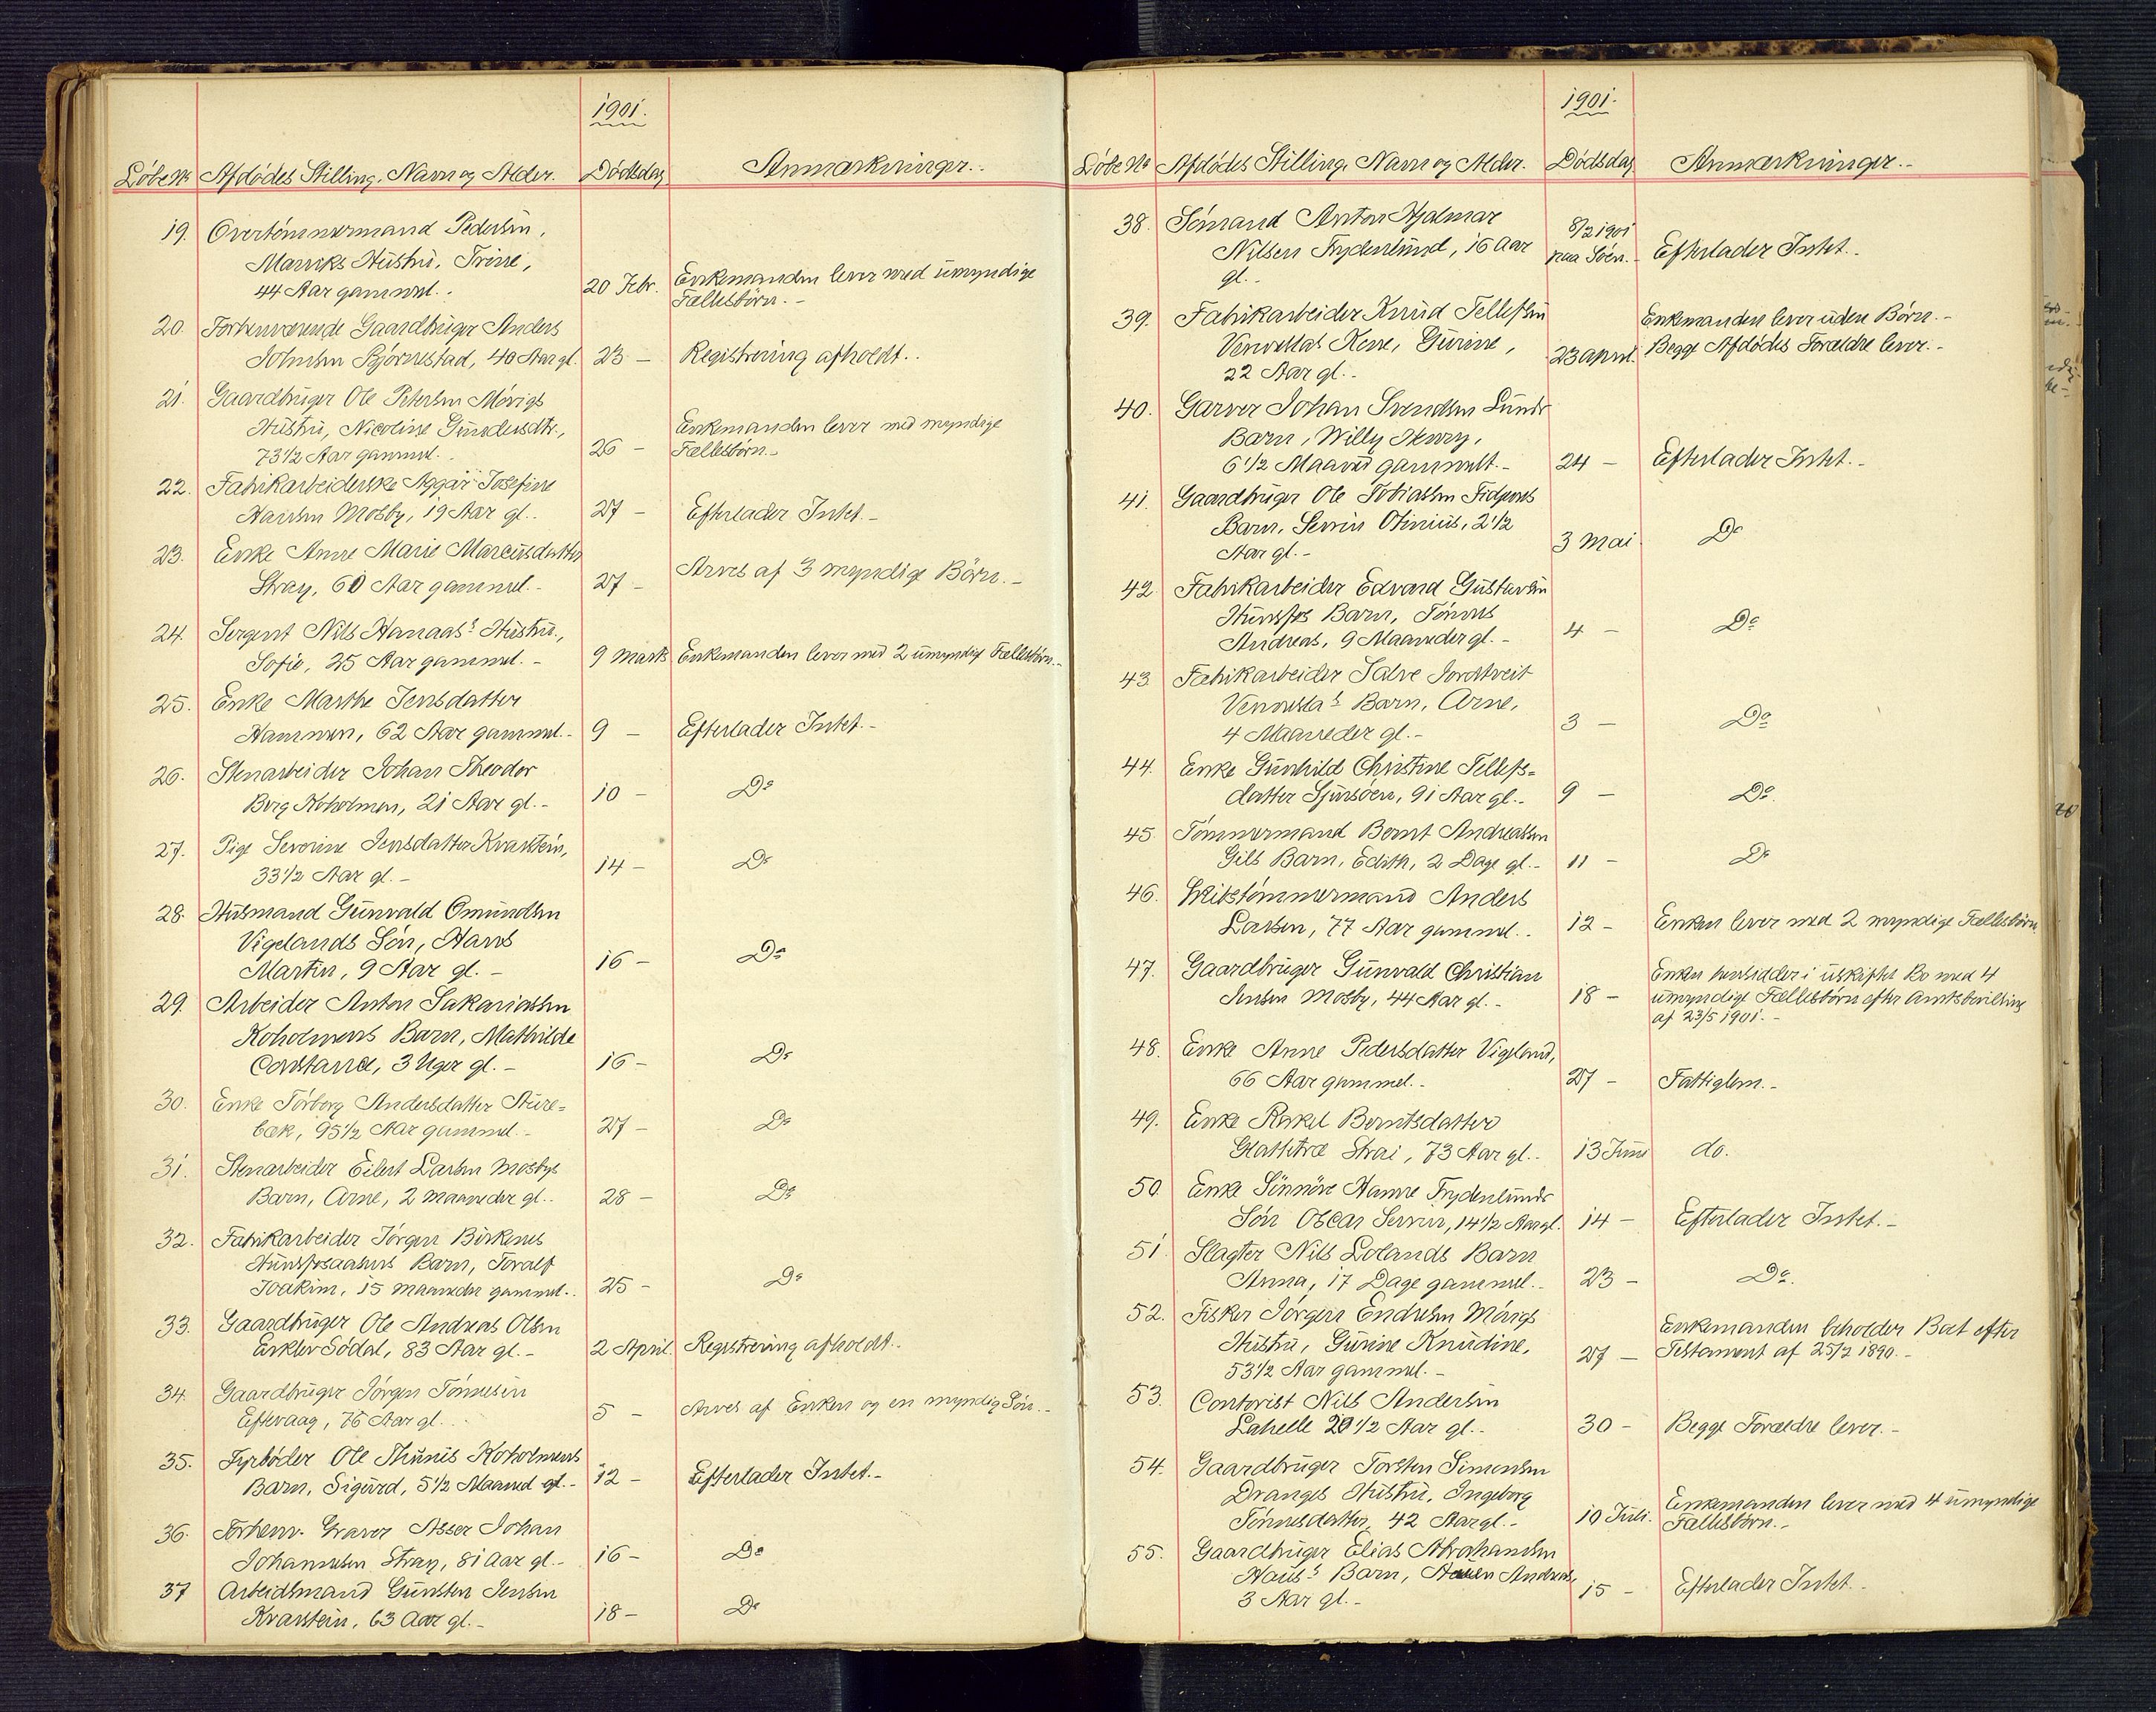 1901.
Löbe No Afdödes Stilling, Navn og Alder. Dödsdag Anmærkninger.
19. Overtömmermand Pedersen,
Hustru, Trine,
44 Aar gammel. 20 Febr. Enkemanden lever med umyndige
Fællesbörn.
20. Forhenværende Gaardbruger Anders
Johnsen Stjörnestad, 40 Aar gl. 23 - Registrering afholdt.
21. Gaardbruger Ole Petersen Mövigs
Hustru, Nicoline Gundersdtr.,
73 1/2 Aar gammel. 26 - Enkemanden lever med myndige
Fællesbörn.
22. Fabrikarbeiderske Josefine
Hansen Mosby, 19 Aar gl. 27 - Efterlader Intet.
23. Enke Anne Marie Marcusdatter
Stray, 60 Aar gammel. 27 - Arves af 3 myndige Börn.
24. Sergent Nils Hanaas's Hustru,
Sofie, 25 Aar gammel. 9 Marts Enkemanden lever med 2 umyndige Fællesbörn.
25. Enke Marthe Jensdatter
Hammen, 62 Aar gammel. 9 - Efterlader Intet.
26. Stenarbeider Johan Theodor
Berg Koholmen, 21 Aar gl. 10 - Do
27. Pige Severine Jensdatter Kvarstein,
33 1/2 Aar gl. 14 - Do
28. Husmand Gunvald Omundsen
Vigelands Sön, Hans
Martin, 9 Aar gl. 16 - Do
29. Arbeider Anton Sakariassen
Koholmens Barn, Mathilde
Constance, 3 Uger gl. 16 - Do
30. Enke Törborg Andersdatter Aure=
bæk, 95 1/2 Aar gammel. 27 - Do
31. Stenarbeider Eilert Larsen Mosbys
Barn, Arne, 2 Maaneder gl. 28 - Do
32. Fabrikarbeider Jörgen Birkenes
Hunsfosaasens Barn, Toralf
Joakim, 15 Maaneder gammel. 25 - Do
33. Gaardbruger Ole Andreas Olsen
Erklev Södal, 83 Aar gl. 2 April Registrering afholdt.
34. Gaardbruger Jörgen Tönnesen
Eftevaag, 76 Aar gl. 5 - Arves af Enken og en myndig Sön.
35. Fyrböder Ole Thunis Koholmens
Barn, Sigurd, 5 1/2 Maaned gl. 12 - Efterlader Intet.
36. Forhenv. Graver Asser Johan
Johannesen Stray, 81 Aar gl. 16 - Do
37 Arbeidsmand Gunsten Jensen
Kvarstein, 63 Aar gl. 18 - Do
1901.
Löbe No Afdödes Stilling, Navn og Alder. Dödsdag Anmærkninger.
38. Sömand Anton Hjalmar
Nilsen Frydenlund, 16 Aar
gl. 8/2 1901
paa Söen. Efterlader Intet.
39. Fabrikarbeider Knud Tellefsen
Venneslas Kone, Gurine,
22 Aar gl. 23 April. Enkemanden lever uden Börn.
Begge Afdödes Forældre lever.
40. Garver Johan Svendsen Lunds
Barn, Willy Henry,
6 1/2 Maaned gammelt. 24 - Efterlader Intet.
41. Gaardbruger Ole Tobiassen Fidjenes
Barn, Severin Otinius, 2 1/2
Aar gl. 3 Mai Do
42. Fabrikarbeider Edvard Gustavsen
Hunsfos Barn, Tönnes
Andreas, 9 Maaneder gl. 4 - Do
43. Fabrikarbeider Salve Jordtveit
Vennesla's Barn, Arne,
4 Maaneder gl. 3 - Do
44. Enke Gunhild Christine Tellefs=
datter Sjursöen, 91 Aar gl. 9 - Do.
45. Tömmermand Bernt Andreassen
Gils Barn, Edith, 2 Dage gl. 11 - Do
46. Skibstömmermand Anders
Larsen, 77 Aar gammel. 12 - Enken lever med 2 myndige Fællesbörn
47. Gaardbruger Gunvald Christian
Jensen Mosby, 44 Aar gl. 18 - Enken hensidder i uskiftet Bo med 4
umyndige Fællesbörn efter Amtsbevilling
af 23/5 1901.
48. Enke Anne Pedersdatter Vigeland,
66 Aar gammel. 27 - Fattiglem.
49. Enke Rakel Berntsdatter
Glattetræ Strai, 73 Aar gl. 13 Juni do.
50. Enke Sönnöve Hanne Frydenlunds
Sön Oscar Severin, 14 1/2 Aar gl. 14 - Efterlader Intet.
51. Slagter Nils Lolands Barn
Anna, 17 Dage gammel. 23 - Do.
52. Fisker Jörgen Endresen Mövigs
Hustru, Gurine Knudine,
53 1/2 Aar gammel. 27 - Enkemanden beholder Boet efter
Testament af 25/2 1890.
53. Contorist Nils Andersen
Lahelle 20 1/2 Aar gl. 30 - Begge Forældre lever.
54. Gaardbruger Torsten Simonsen
Dranges Hustru, Ingeborg
Tönnesdatter, 42 Aar gl. 10 Juli. Enkemanden lever med 4 umyndige
Fællesbörn.
55. Gaardbruger Elias Abrahamsen
Haus's Barn, Andreas,
3 Aar gl. 15 - Efterlader Intet.